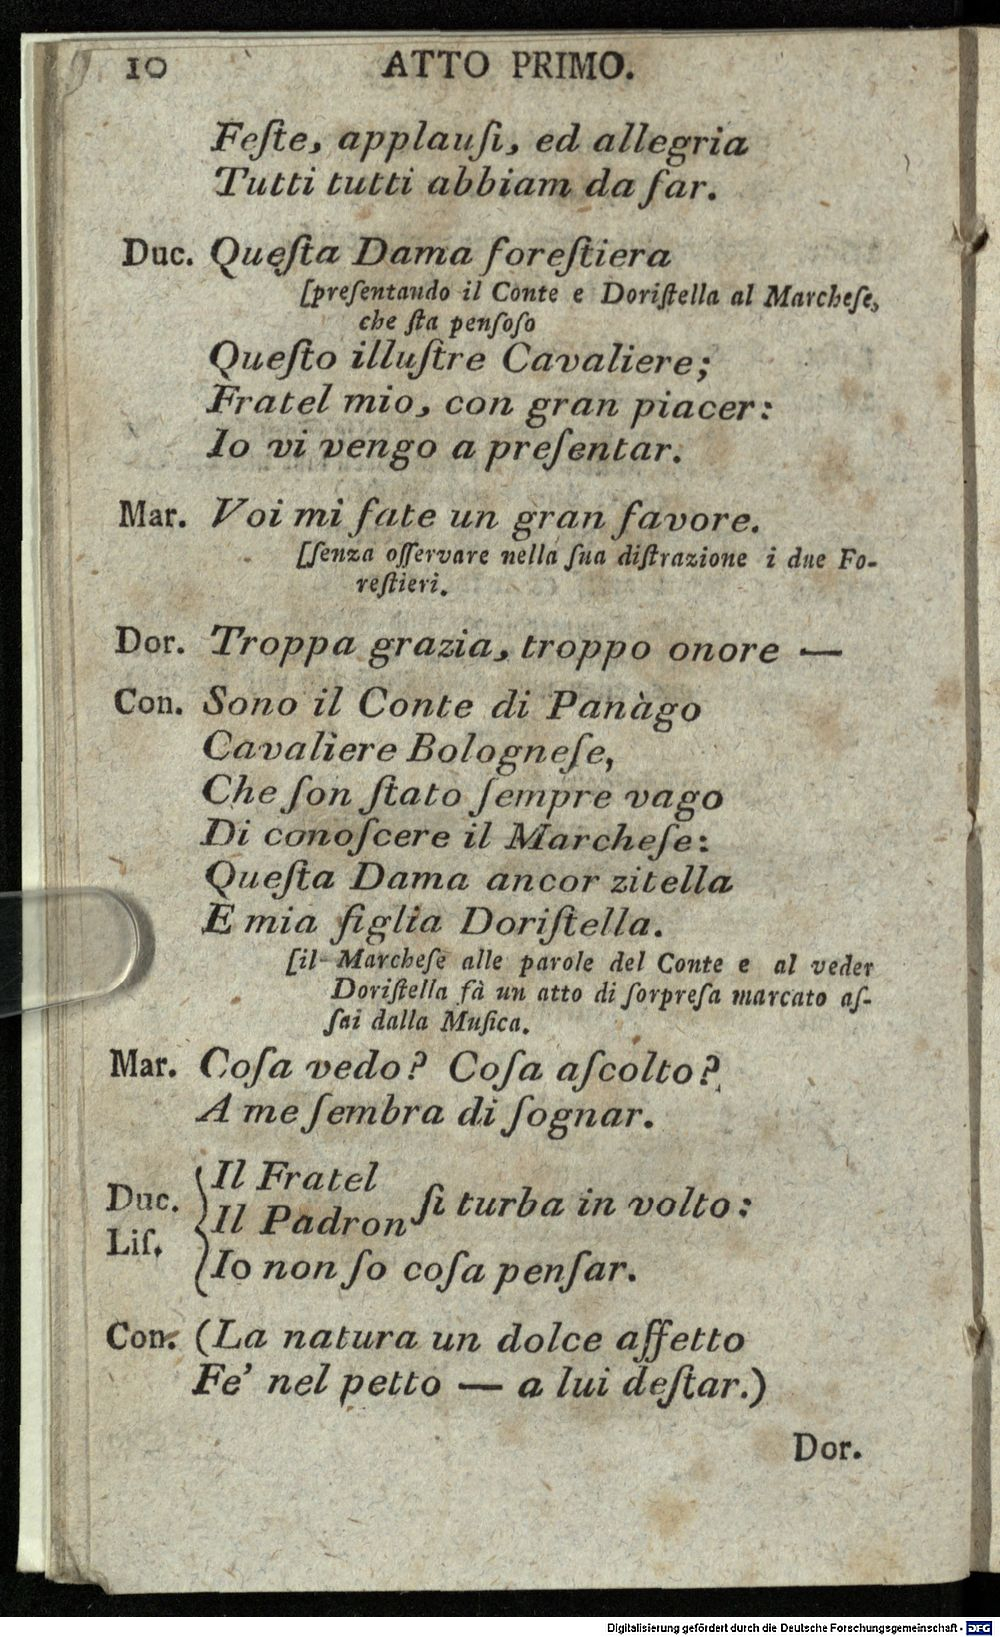 10 ATTO PRIMO.
Feſte, applauſi, ed allegria
Tutti tutti abbiam da far.
Duc. Queſta Dama foreſtiera
[preſentando il Conte e Doriſtella al Marcheſe,
che ſta penſoſo
Queſto illuſtre Cavaliere;
Fratel mio, con gran piacer:
Io vi vengo a preſentar.
Mar. Voi mi fate un gran favore.
[ſenza oſſervare nella ſua diſtrazione i due Fo-
reſtieri.
Dor. Troppa grazia, troppo onore —
Con. Sono il Conte di Panàgo
Cavaliere Bologneſe,
Che ſon ſtato ſempre vago
Di conoſcere il Marcheſe:
Queſta Dama ancor zitella
E mia figlia Doriſtella.
[il Marcheſe alle parole del Conte e al veder
Doriſtella fà un atto di ſorpreſa marcato aſ-
ſai dalla Muſica.
Mar. Coſa vedo? Coſa aſcolto?
A me ſembra di ſognar.
Duc. Il Fratel
Liſ. Il Padron ſi turba in volto:
Io non ſo coſa penſar.
Con. (La natura un dolce affetto
Fe' nel petto — a lui deſtar.)
Dor.
Digitalisierung gefördert durch die Deutsche Forschungsgemeinschaft - DFG